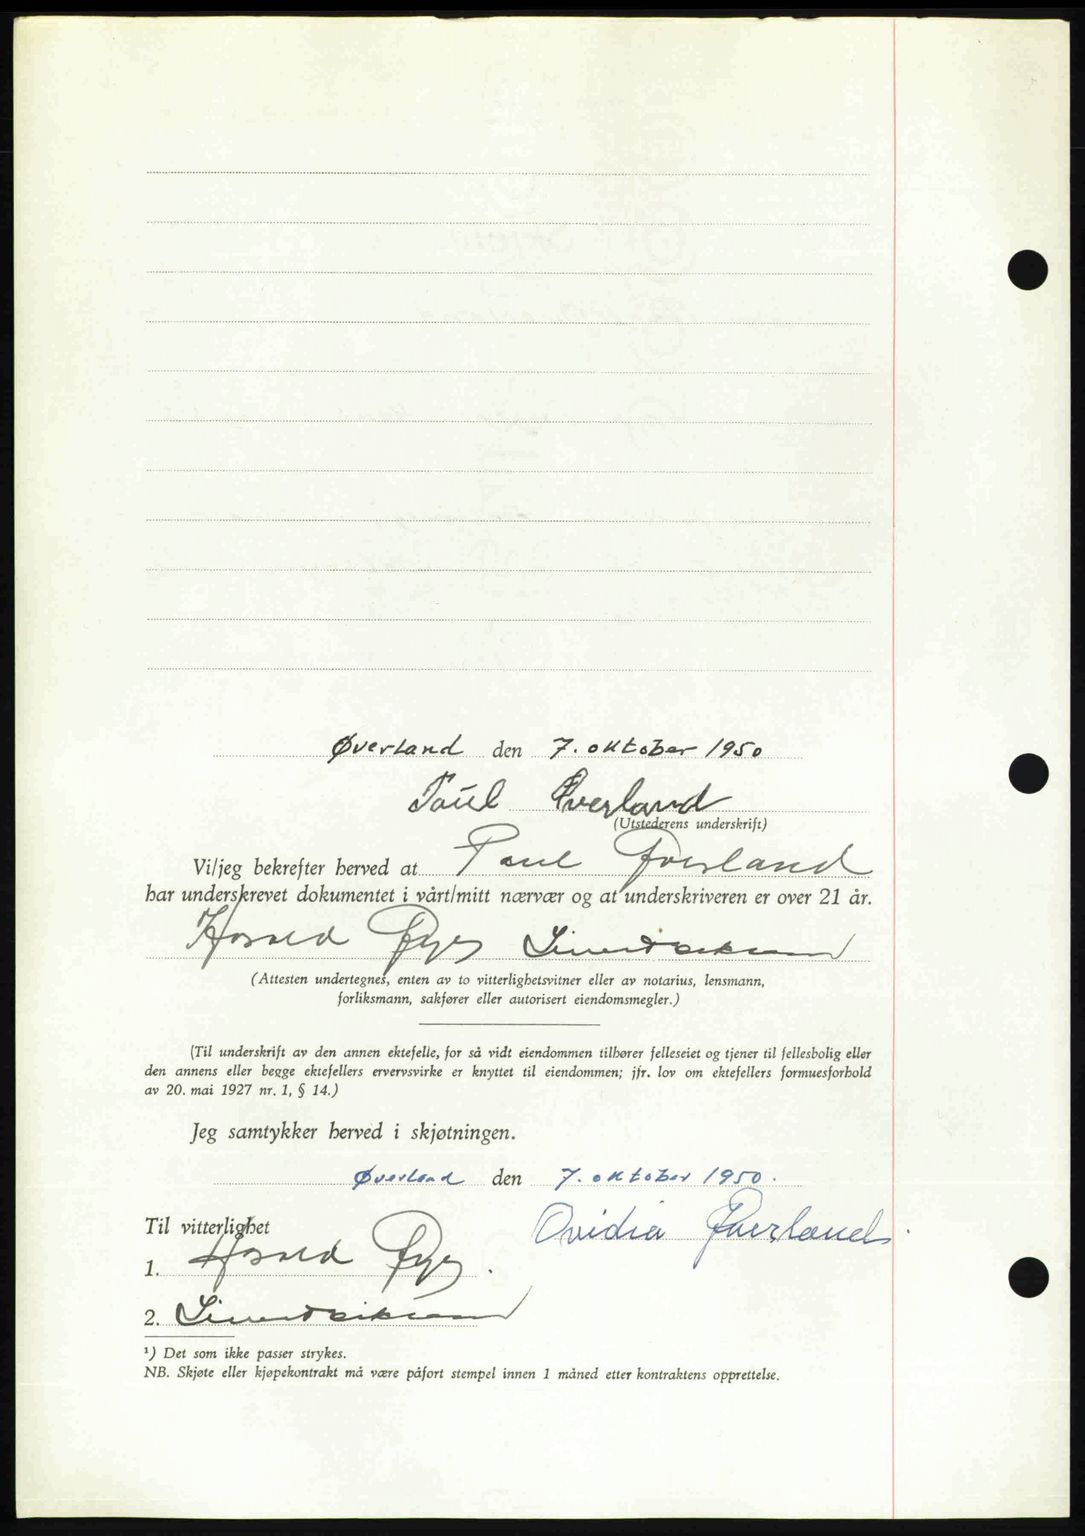 Øverland den 7. oktober 1950
Paul Øverland
(Utstederens underskrift)
Vi/jeg bekrefter herved at Paul Øverland
har underskrevet dokumentet i vårt/mitt nærvær og at underskriveren er over 21 år.
(Attesten undertegnes, enten av to vitterlighetsvitner eller av notarius, lensmann,
forliksmann, sakfører eller autorisert eiendomsmegler.)
(Til underskrift av den annen ektefelle, for så vidt eiendommen tilhører felleseiet og tjener til fellesbolig eller
den annens eller begge ektefellers ervervsvirke er knyttet til eiendommen; jfr. lov om ektefellers formuesforhold
av 20. mai 1927 nr. 1, § 14.)
Jeg samtykker herved i skjøtningen.
Øverland den 7. oktober 1950.
Til vitterlighet
Ovidia Øverland.
1.
2.
¹) Det som ikke passer strykes.
NB. Skjøte eller kjøpekontrakt må være påført stempel innen 1 måned etter kontraktens opprettelse.